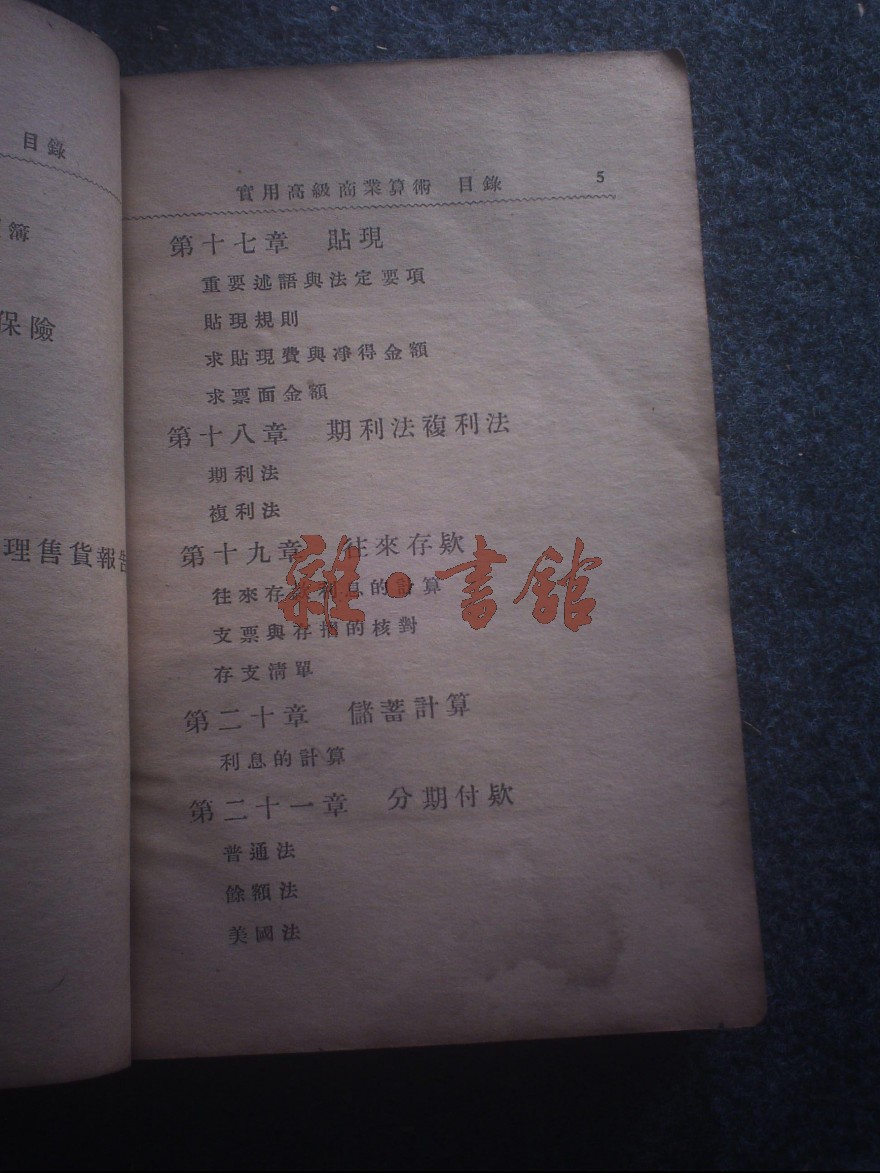 目錄
簿
保險
理售貨報告
實用高級商業算術 目錄 5
第十七章 貼現
重要述語與法定要項
貼現規則
求貼現費與淨得金額
求票面金額
第十八章 期利法複利法
期利法
複利法
第十九章 往來存欵
往來存款利息的計算
支票與存摺的核對
存支清單
第二十章 儲蓄計算
利息的計算
第二十一章 分期付欵
普通法
餘額法
美國法
雜·書館